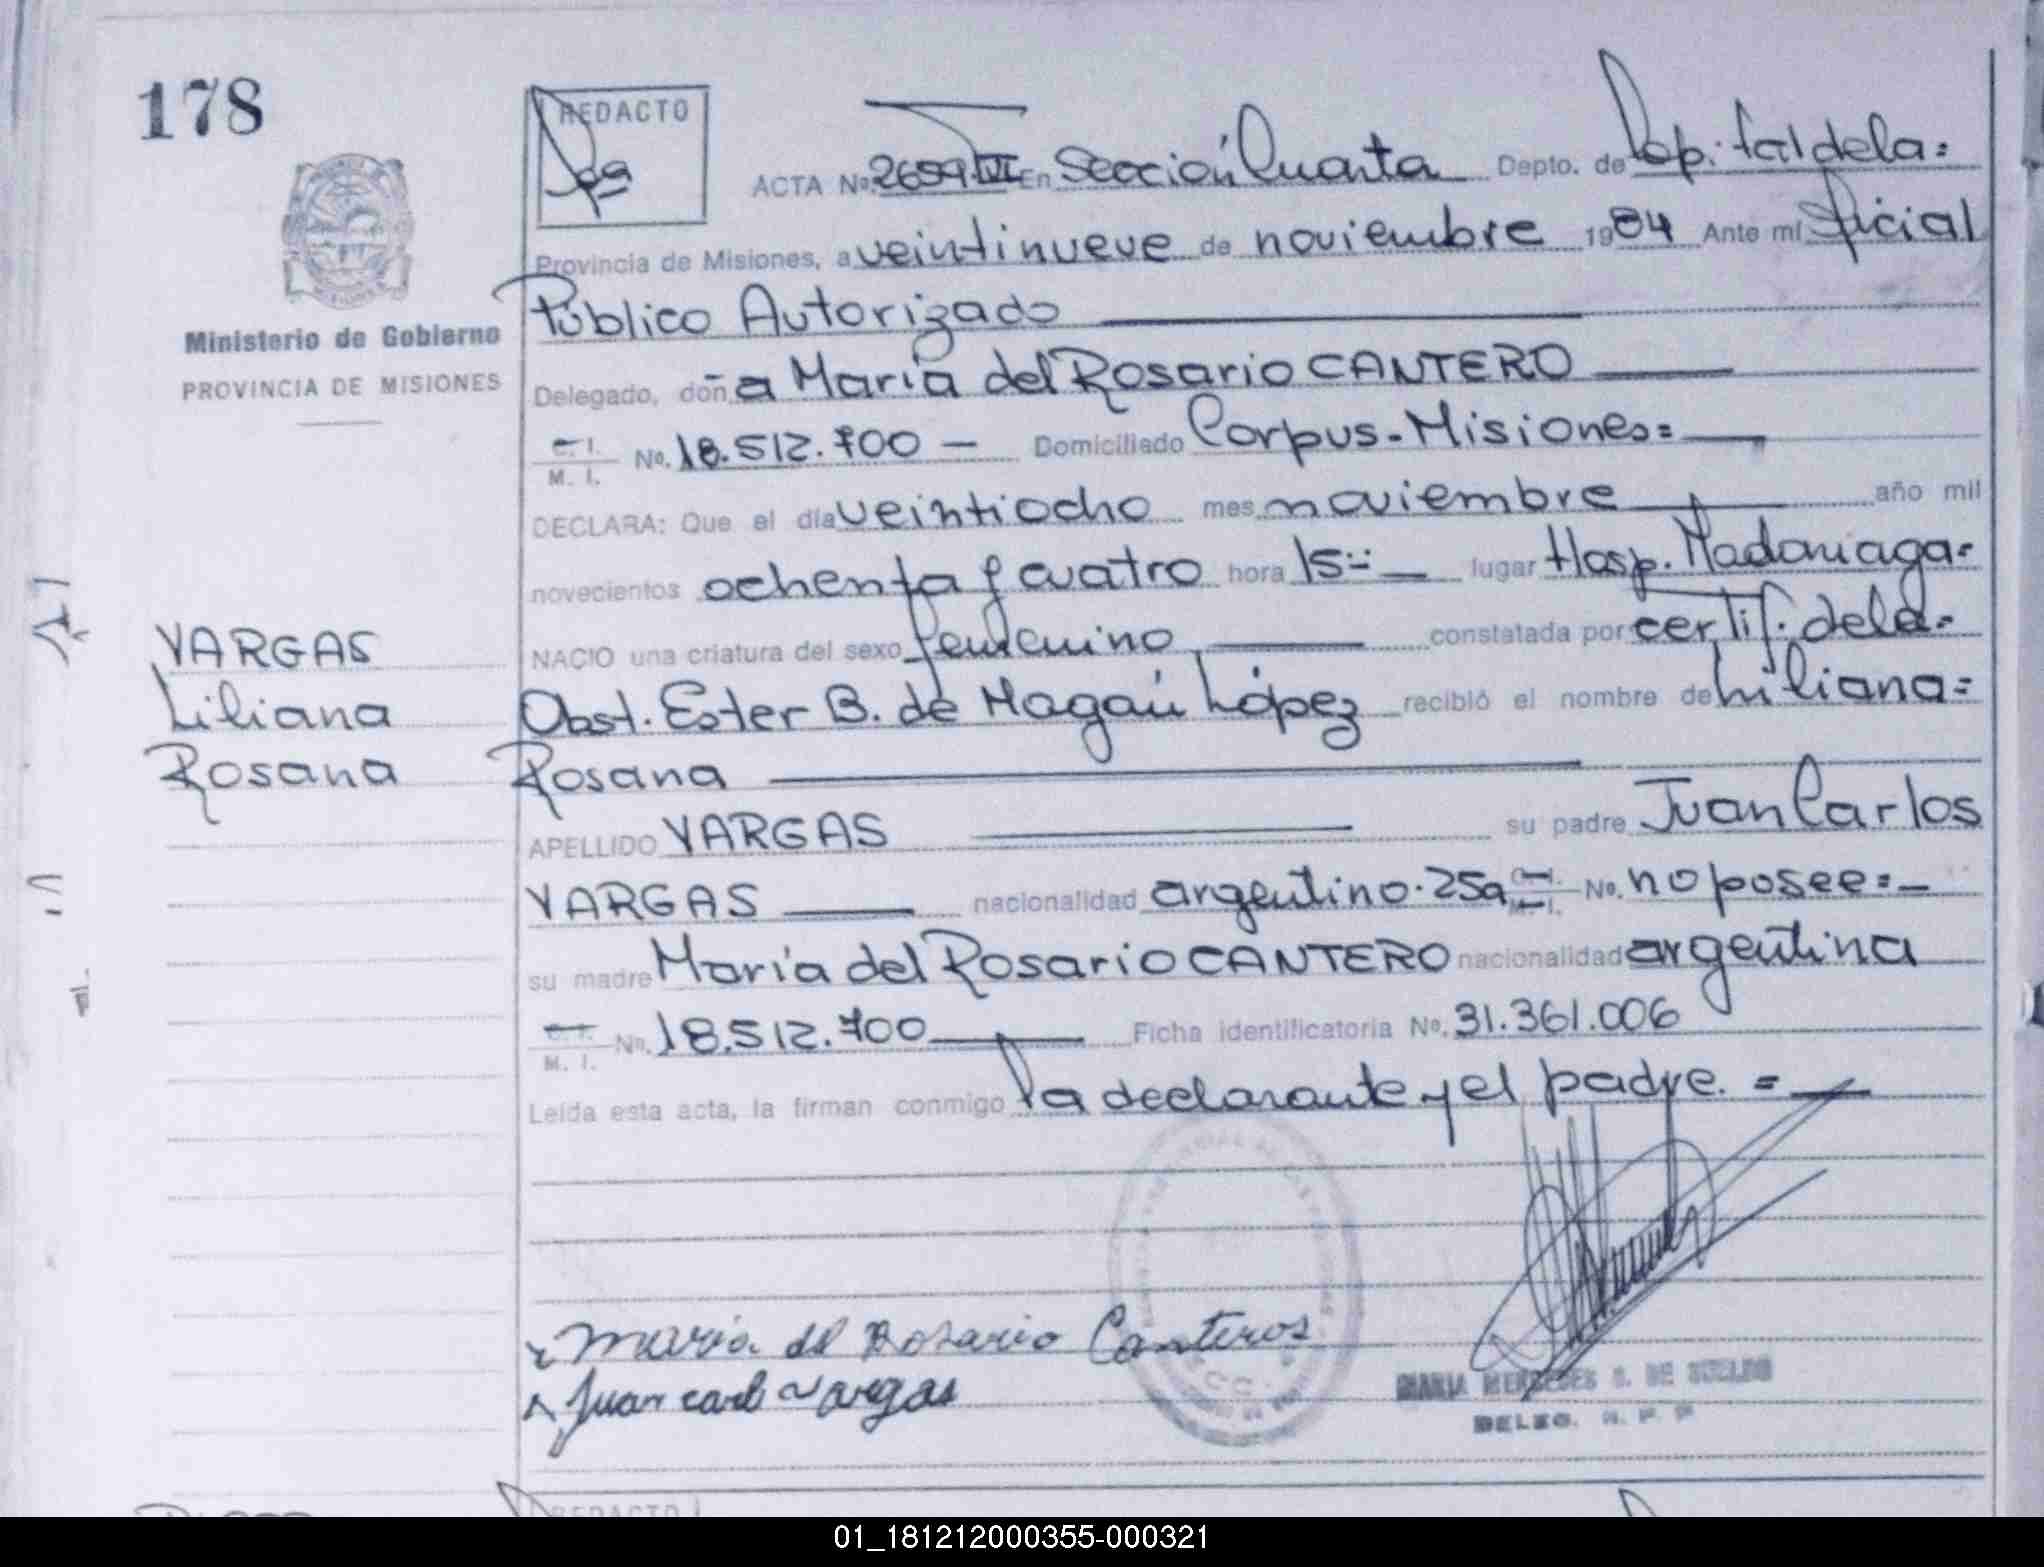 178
REDACTO
ACTA No. 2659 VII En Sección Cuarta Depto. de Cap:tal dela=
Provincia de Misiones, a veintinueve de noviembre 1984 Ante mí Oficial
Público Autorizado
Ministerio de Gobierno
PROVINCIA DE MISIONES
Delegado, don a María del Rosario CANTERO
C. I. M. I. No. 18.512.700 — Domiciliado Corpus-Misiones=
DECLARA: Que el día veintiocho mes noviembre año mil
novecientos ochenta y cuatro hora 15-- lugar Hosp. Madariaga=
NACIO una criatura del sexo femenino constatada por certif. dela=
VARGAS
Liliana
Rosana
Obst. Ester B. de López recibió el nombre de Liliana=
Rosana
APELLIDO VARGAS su padre Juan Carlos
VARGAS nacionalidad argentino.25a C. I. M. I. No. no posee=
su madre María del Rosario CANTERO nacionalidad argentina
C. I. M. I. No. 18.512.700 Ficha identificatoria No. 31.361.006
Leída esta acta, la firman conmigo la declarante y el padre. =
María del Rosario Canteros
Juan carlo Vargas
MARIA MERCEDES S. DE SUELDO
DELEG. R. P. P
REDACTO
01_181212000355-000321